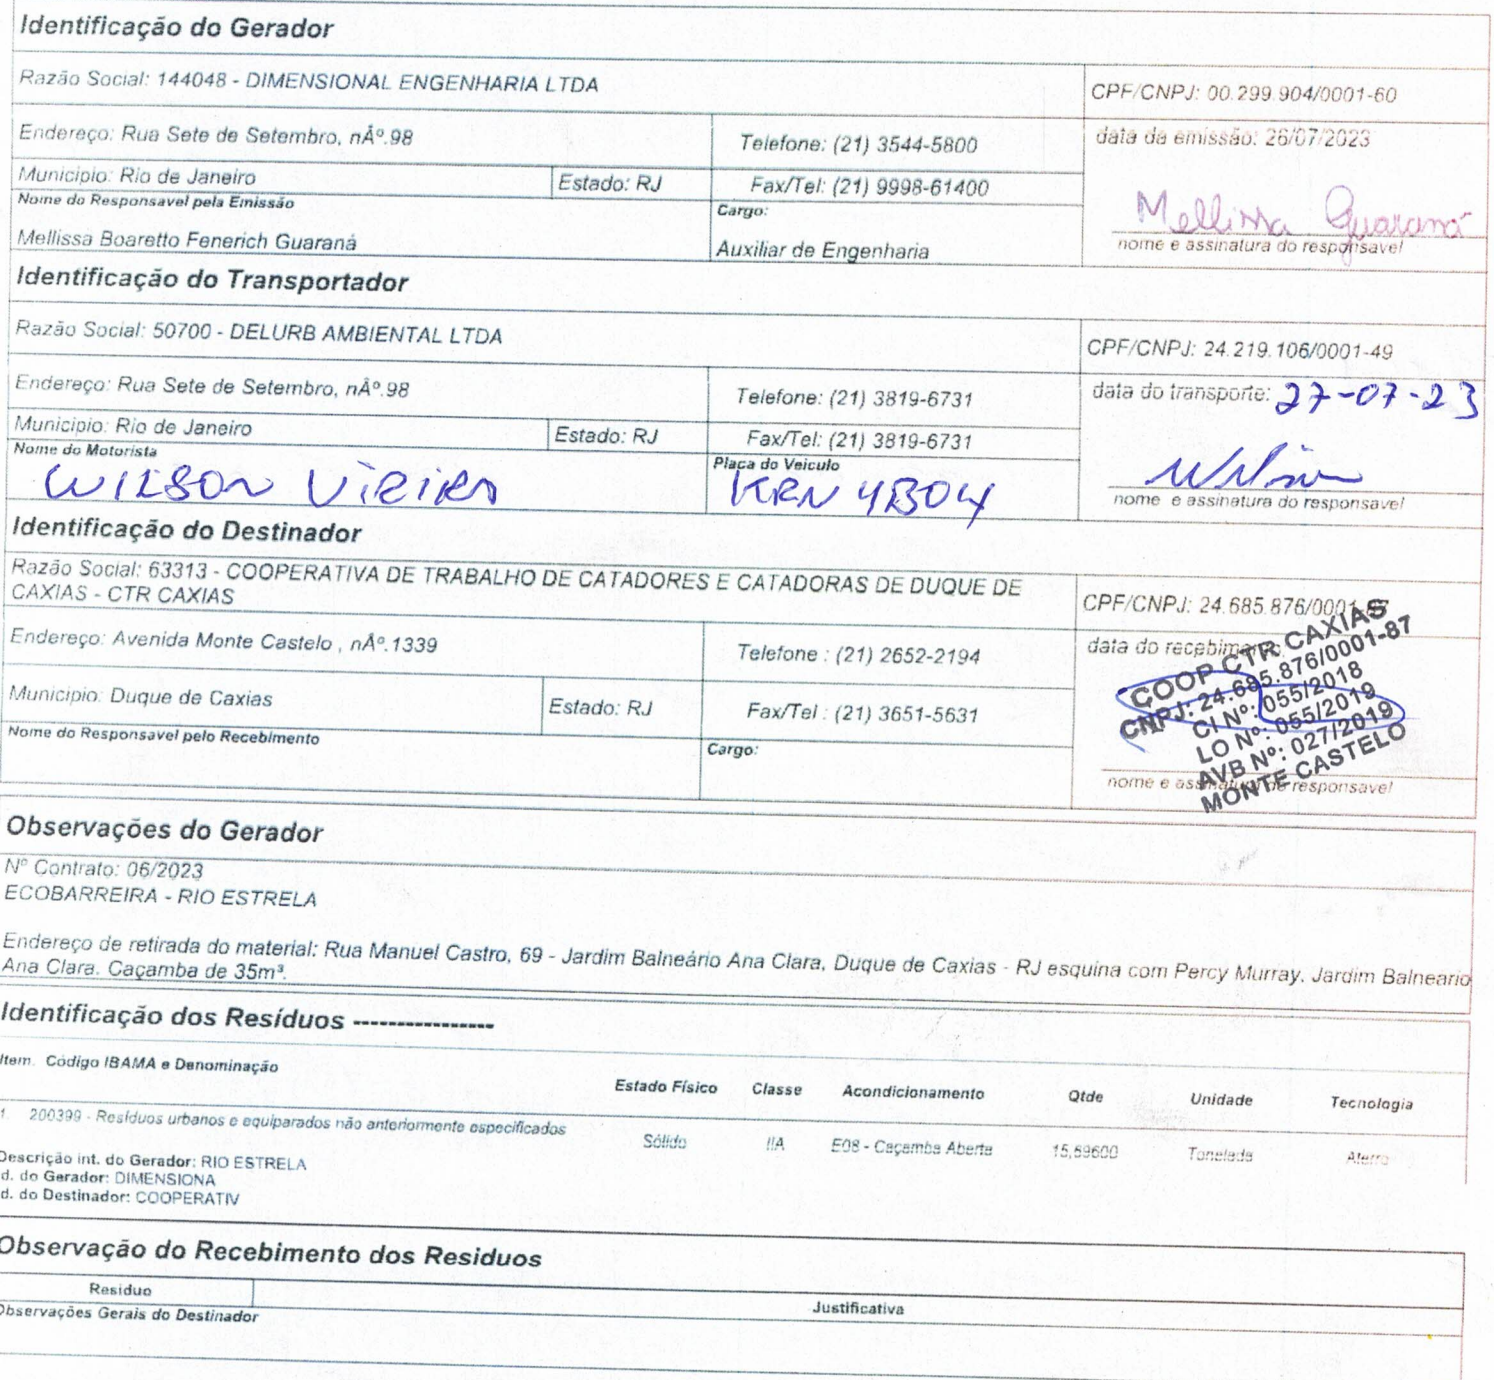 Identificação do Gerador
Razão Social: 144048 - DIMENSIONAL ENGENHARIA LTDA
CPF/CNPJ: 00.299.904/0001-60
Endereço: Rua Sete de Setembro, nÂº.98
Telefone: (21) 3544-5800
data da emissão: 26/07/2023
Municipio: Rio de Janeiro
Estado: RJ
Fax/Tel: (21) 9998-61400
Nome do Responsavel pela Emissão
Cargo:
Mellissa Guaraná
Mellissa Boaretto Fenerich Guaraná
Auxiliar de Engenharia
nome e assinatura do responsavel
Identificação do Transportador
Razão Social: 50700 - DELURB AMBIENTAL LTDA
CPF/CNPJ: 24.219.106/0001-49
Endereço: Rua Sete de Setembro, nÂº.98
Telefone: (21) 3819-6731
data do transporte: 27-07-23
Municipio: Rio de Janeiro
Estado: RJ
Fax/Tel: (21) 3819-6731
Nome do Motorista
Placa do Veiculo
WILSON VIEIRA
KRN 4B04
Wilson
nome e assinatura do responsavel
Identificação do Destinador
Razão Social: 63313 - COOPERATIVA DE TRABALHO DE CATADORES E CATADORAS DE DUQUE DE
CAXIAS - CTR CAXIAS
CPF/CNPJ: 24.685.876/0001-87
Endereço: Avenida Monte Castelo , nÂº.1339
Telefone : (21) 2652-2194
data do recebimento:
COOP CTR CAXIAS
CNPJ: 24.685.876/0001-87
CI Nº: 055/2018
LO Nº: 055/2019
AVB Nº: 027/2019
MONTE CASTELO
Municipio: Duque de Caxias
Estado: RJ
Fax/Tel : (21) 3651-5631
Nome do Responsavel pelo Recebimento
Cargo:
nome e assinatura do responsavel
Observações do Gerador
Nº Contrato: 06/2023
ECOBARREIRA - RIO ESTRELA
Endereço de retirada do material: Rua Manuel Castro, 69 - Jardim Balneário Ana Clara, Duque de Caxias - RJ esquina com Percy Murray, Jardim Balneario
Ana Clara. Caçamba de 35m³.
Identificação dos Resíduos ----------------
Item. Código IBAMA e Denominação
Estado Físico Classe Acondicionamento Qtde Unidade Tecnologia
1. 200399 - Resíduos urbanos e equiparados não anteriormente especificados
Sólido IIA E08 - Caçamba Aberta 15,69600 Tonelada Aterro
Descrição int. do Gerador: RIO ESTRELA
d. do Gerador: DIMENSIONA
d. do Destinador: COOPERATIV
Observação do Recebimento dos Residuos
Residuo
Justificativa
Observações Gerais do Destinador